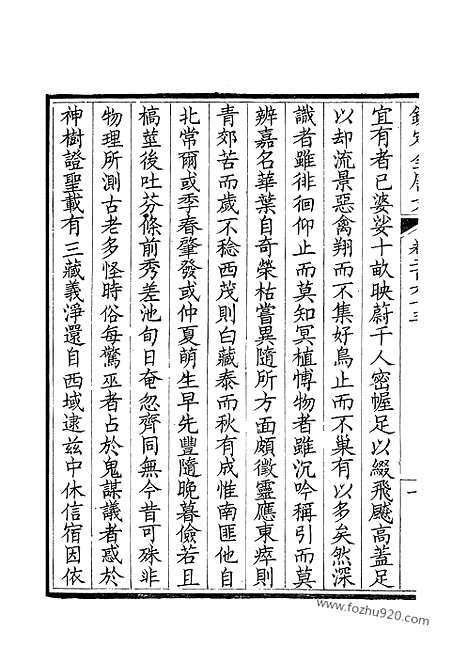 宜有者已婆娑十畝映蔚千人密幄足以綴飛飈高蓋足
以却流景惡禽翔而不集好鳥止而不巢有以多矣然深
識者雖徘徊仰止而莫知冥植博物者雖沉吟稱引而莫
辨嘉名華葉自奇榮枯嘗異隨所方面頗徵靈應東瘁則
青郊苦而歲不稔西茂則白藏泰而秋有成惟南匪他自
北常爾或季春肇發或仲夏萌生早先豐隨晚暮儉若且
槁莖後吐芬條前秀差池旬日奄忽齊同無今昔可殊非
物理所測古老多怪時俗每驚巫者占於鬼謀議者惑於
神樹證聖載有三藏義淨還自西域逮兹中休信宿因依
www.fozhu920.com